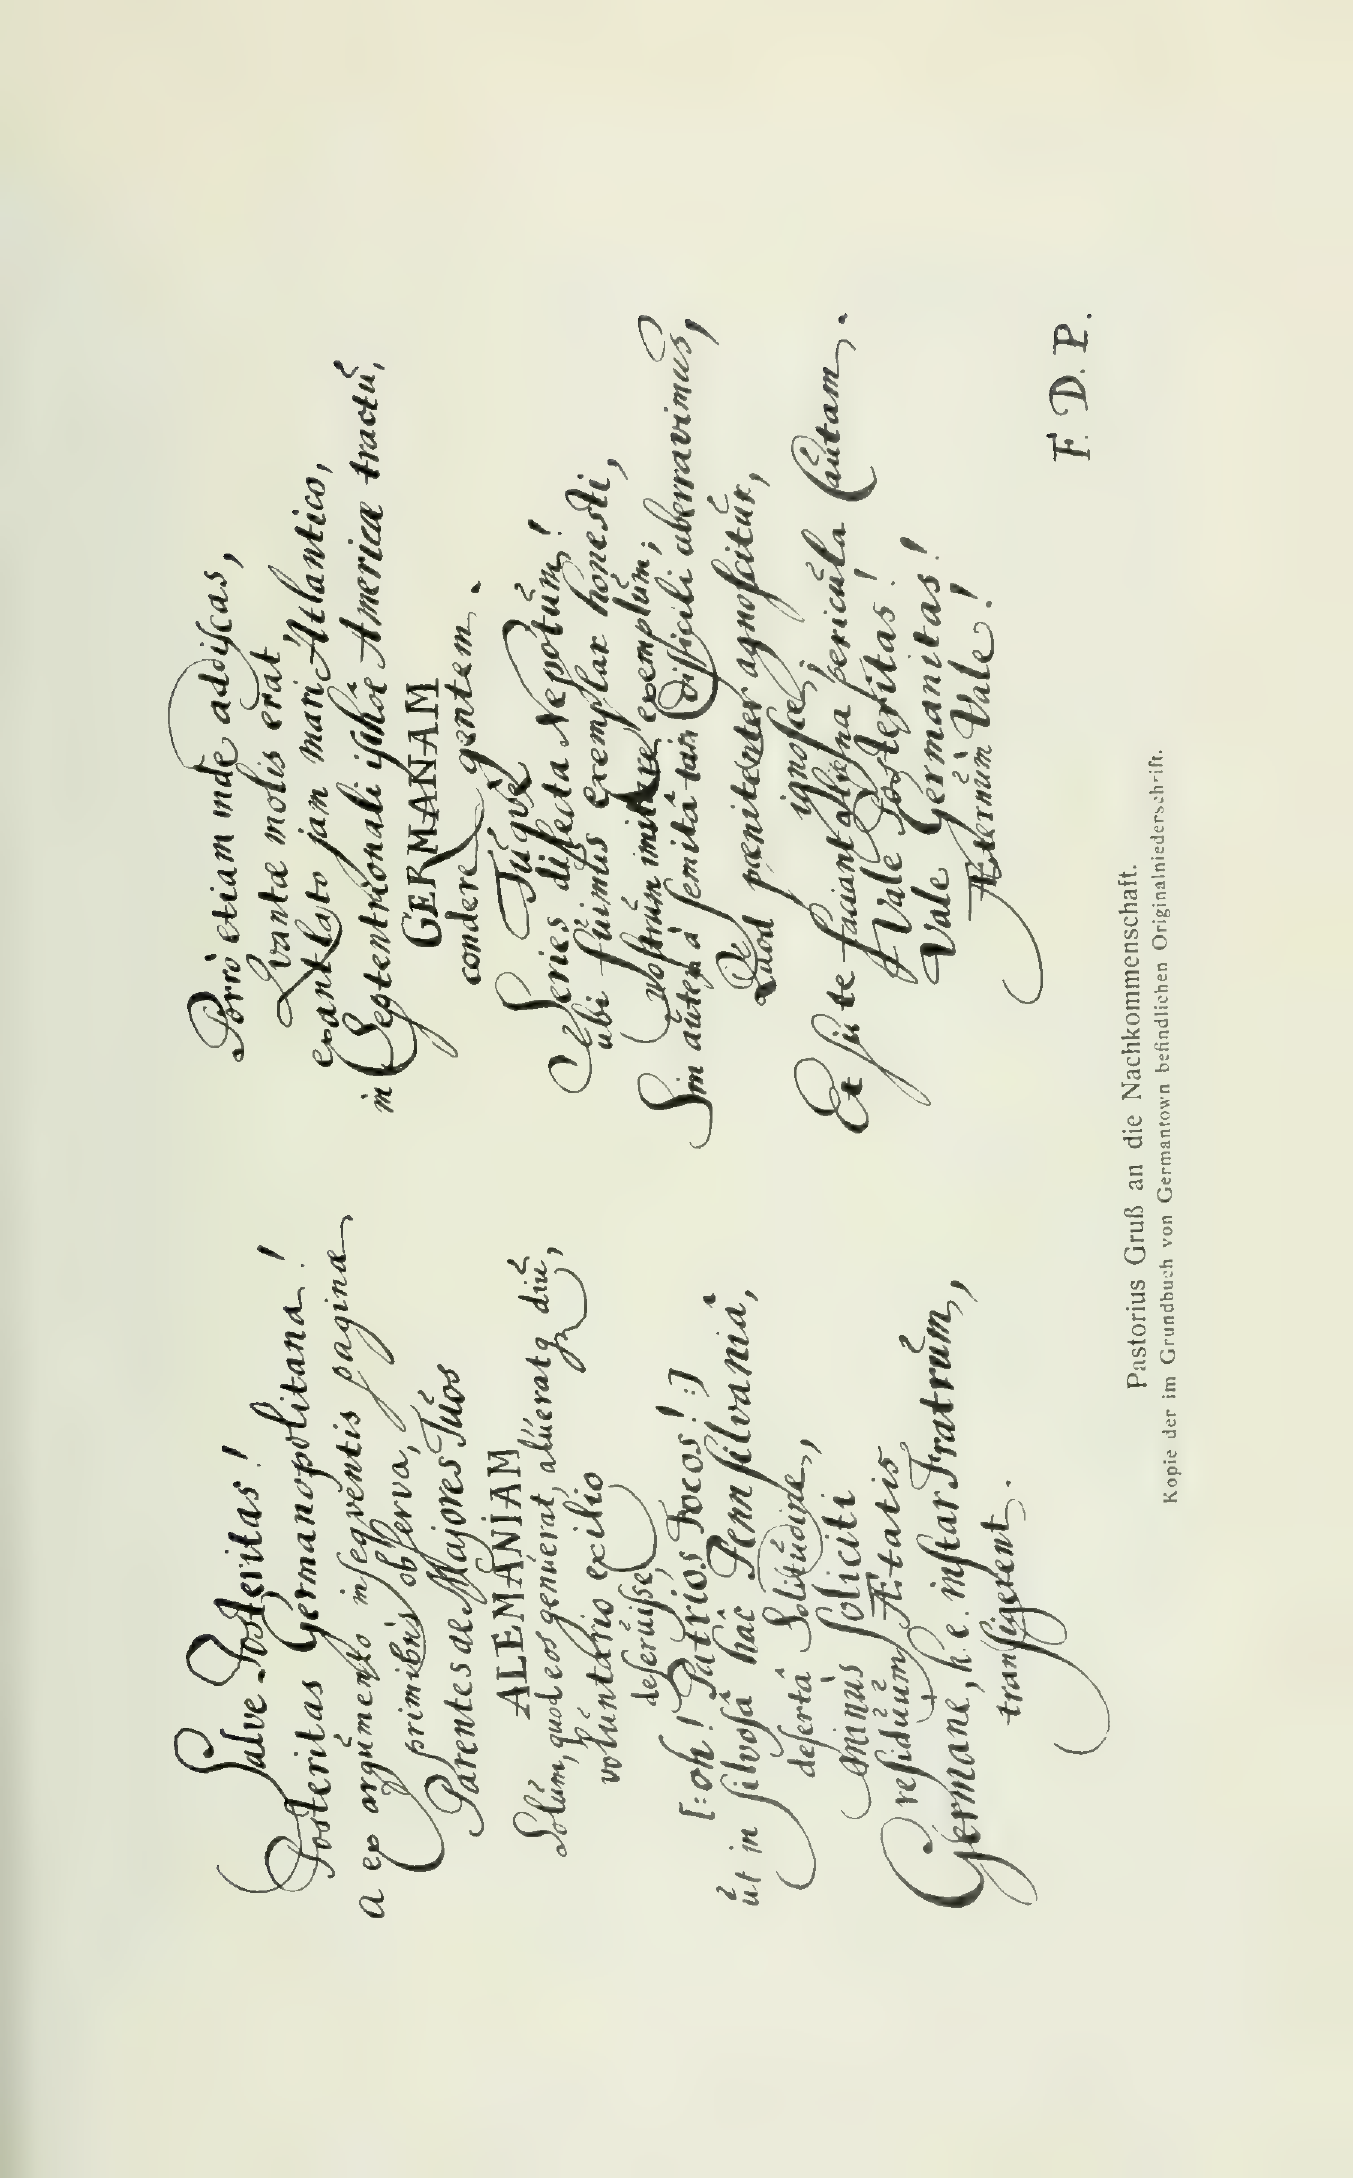 Salve Posteritas!
Posteritas Germanopolitana!
a ex argúmento inseqventis paginæ
primibús observa,
Parentes ac Majores Túos
ALEMANIAM
Solúm, quod eos genúerat, alúeratq diú,
volúntario exilio
deserúisse,
[:oh! Patrios Focos!:]
út in silvosâ hâc Pennsilvaniâ,
desertâ Solitúdine,
minùs soliciti
residúúm Ætatis
Germane, h.e. instar Fratrúm,
transigerent.
Porrò etiam inde addiscas,
Qvantæ molis erat
exantlato jam mari Atlantico,
in Septentrionali isthôc Americæ tractú,
GERMANAM
condere gentem.
Túque
Series dilecta Nepotúm!
ubi fúimus exemplar honesti,
nostrúm imitare exemplúm;
Sin aútem à semitâ tam difficili aberravimus,
Qúod pœnitenter agnoscitúr,
ignosce;
Et sic te faciant aliena pericúla Caútam.
Vale Posteritas!
Vale Germanitas!
Æternúm Vale!
F. D. P.
Pastorius Gruß an die Nachkommenschaft.
Kopie der im Grundbuch von Germantown befindlichen Originalniederschrift.